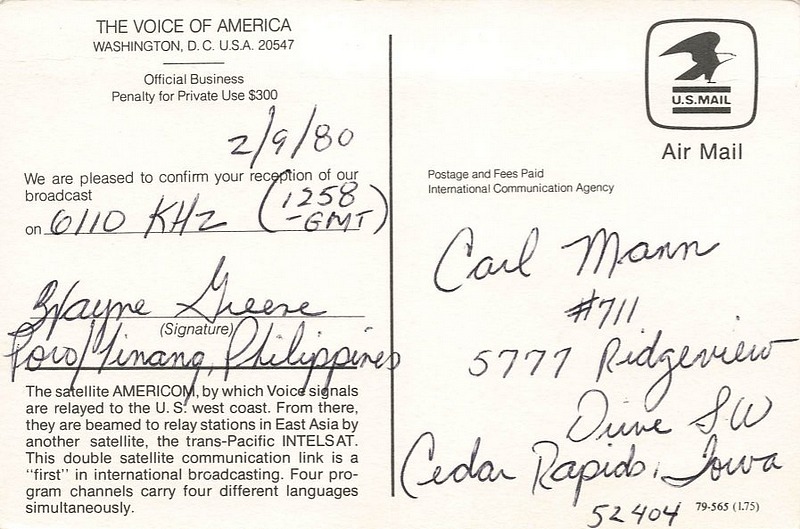 THE VOICE OF AMERICA
WASHINGTON, D. C. U.S.A. 20547
Official Business
Penalty for Private Use $300
2/9/80
We are pleased to confirm your reception of our
broadcast
on 6110 KHz (1258
-GMT)
Wayne Greene
(Signature)
Poro/Tinang, Philippines
The satellite AMERICOM, by which Voice signals
are relayed to the U.S. west coast. From there,
they are beamed to relay stations in East Asia by
another satellite, the trans-Pacific INTELSAT.
This double satellite communication link is a
"first" in international broadcasting. Four pro-
gram channels carry four different languages
simultaneously.
U.S.MAIL
Air Mail
Postage and Fees Paid
International Communication Agency
Carl Mann
#711
5777 Ridgeview
Drive SW
Cedar Rapids, Iowa
52404
79-565 (1.75)